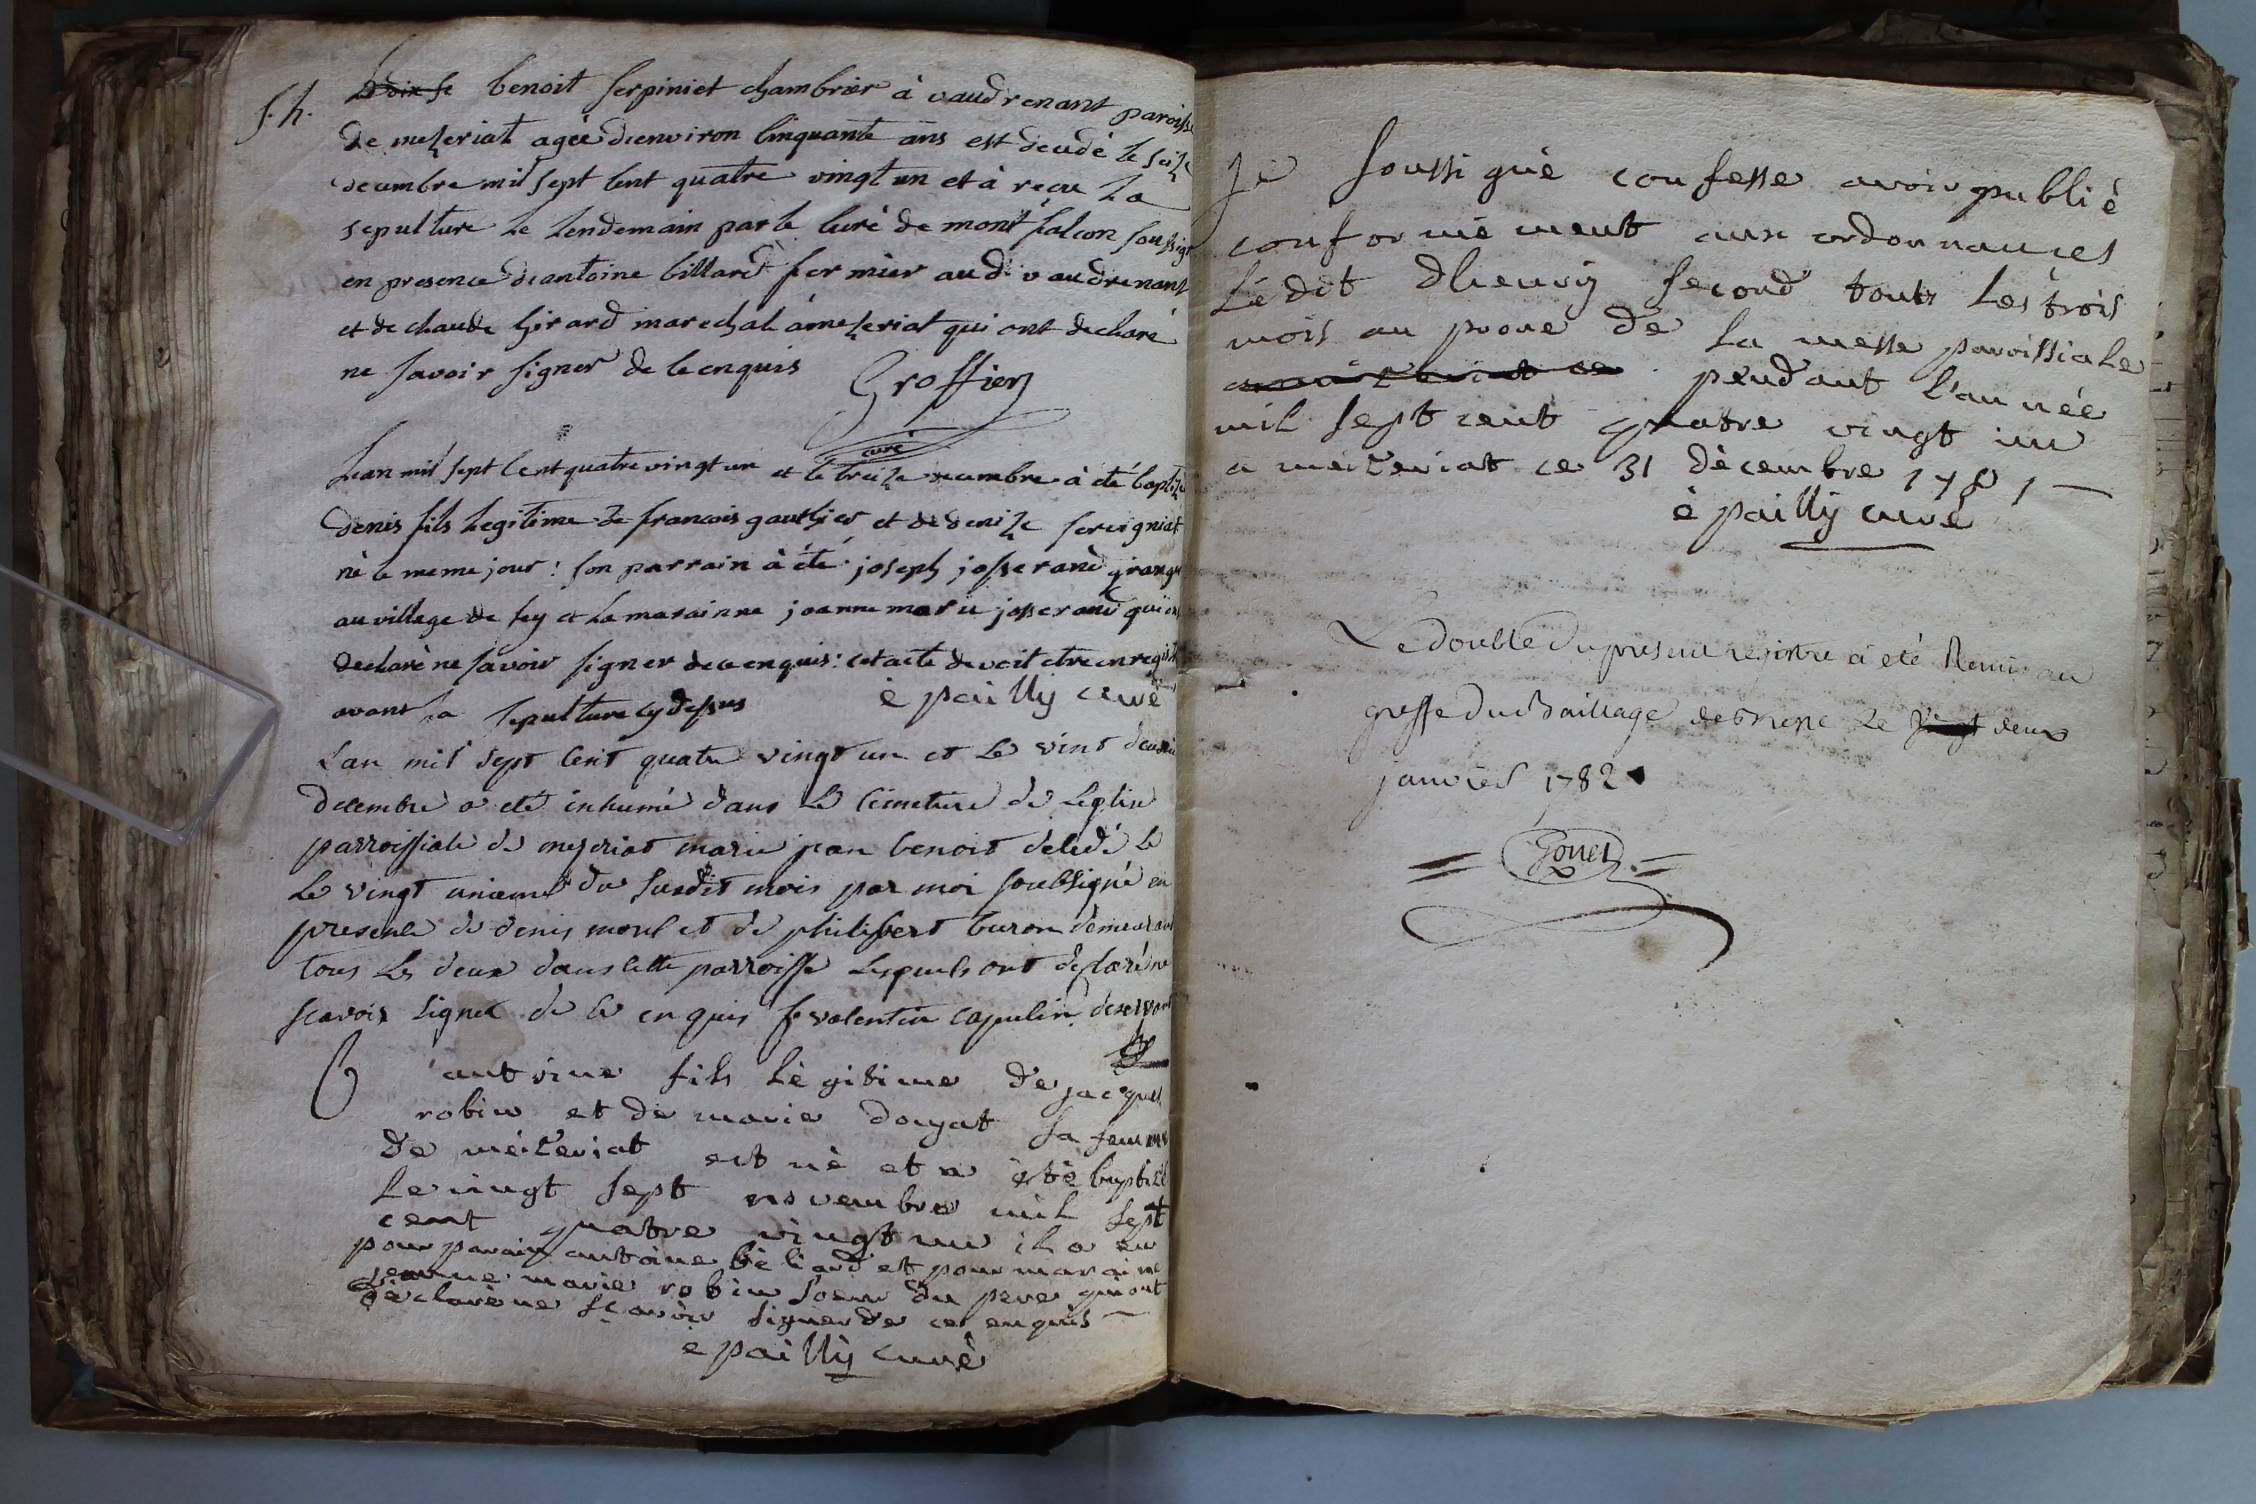 S. h.
benoit serpiniet chambrier à vaudrenant paroisse
de mezeriat agée d'environ cinquante ans est decedé le seize
decembre mil sept cent quatre vingt un et à reçu la
sepulture le lendemain par le curé de mont falcon soussigné
en presence d'antoine billard fermier aud. vaudrenant
et de claude girard marechal à mezeriat qui ont declaré
ne savoir signer de ce enquis Groffier
curé
Lan mil sept cent quatre vingt un et le treize decembre à été baptizé
denis fils legitime de francois gauthier et de denize
né le meme jour : son parrain à été joseph josserand granger
au village de fey et la marainne jeanne marie josserand qui ont
declaré ne savoir signer de ce enquis : cet acte devoit etre enregistré
avant la sepulture cy dessus è pailly curé
Lan mil sept cent quatre vingt un et le vint deuxie
decembre a eté inhumé dans le cimetiere de Leglise
parroissiale de mezeriat marie jean benoit decedé le
le vingt unieme du susdit mois par moi soubsigné en
presence de denis morel et de philibert buron demeurant
tous les deux dans cette parroisse lesquels ont declaré ne
scavoir signer de ce enquis f valentin capucin deservant
B antoine fils légitime de jacques
robin et de marie douyat sa femme
de méizeriat est né et a été baptisé
le vingt sept novembre mil sept
cent quatre vingt un il a eu
pour parain antoine béliard et pour maraine
jeanne marie robin soeur du pere qui ont
declaré ne sçavoir signer de ce enquis
è pailly curé
Je soussigné confesse avoir publié
conformément aux ordonnances
L'édit d'henry second touts les trois
mois au prone de la messe paroissiale
pendant l'année
mil sept cent quatre vingt un
a meizeriat ce 31 décembre 1781
è pailly curé
Le double du present registre a eté Remis au
greffe du Bailliage de Bresse le vingt deux
janvier 1782